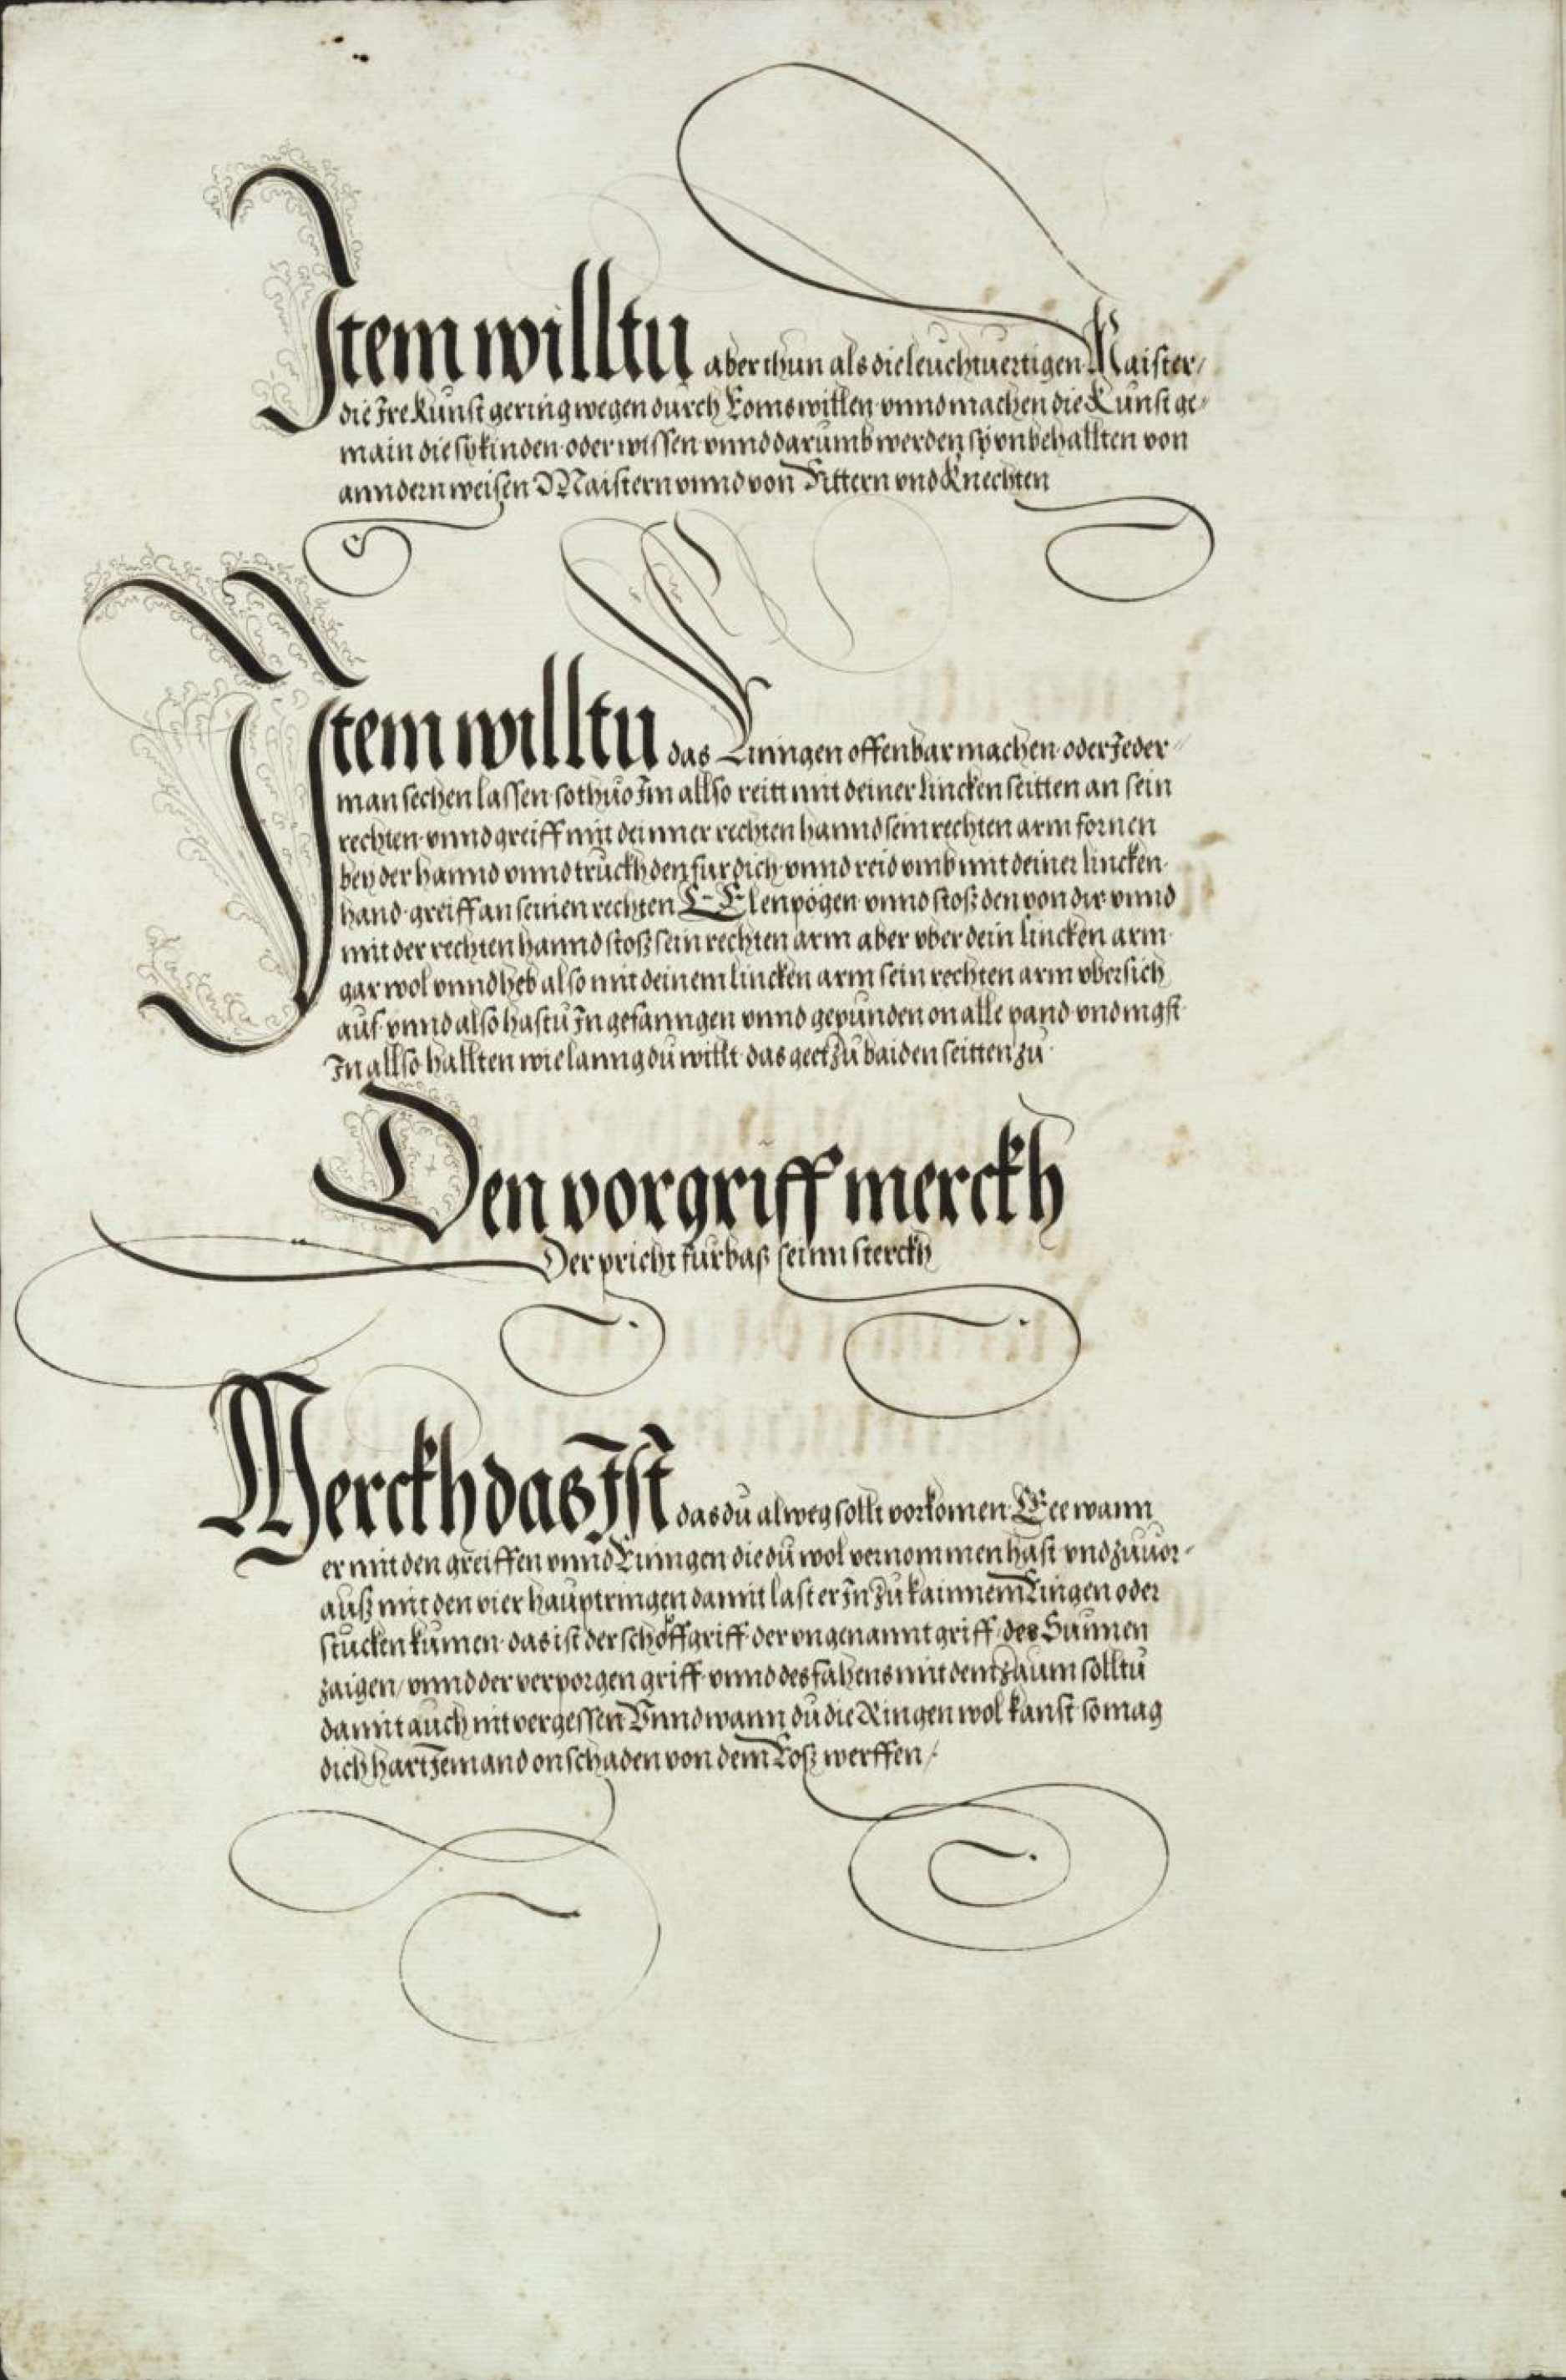 Item willtu aber thun als die leuchtuertigen Maister/
die Ire Kunst gering wegen durch Roms willen vnnd machen die Kunst ge-
main die sy kinden oder wissen vnnd darumb werden sy vnbehallten von
anndern weisen Maistern vnnd von Rittern vnd Knechten
Item willtu das Ringen offenbar machen oder Jeder-
man sechen lassen so thuo Im allso reitt mit deiner lincken seitten an sein
rechten vnnd greiff mit deinner rechten hannd sein rechten arm fornen
bey der hannd vnnd truckh den fur dich vnnd reid vmb mit deiner lincken
hand greiff an seinen rechten Elenpogen vnnd stoß den von dir vnnd
mit der rechten hannd stoß sein rechten arm aber vber dein lincken arm
gar wol vnnd heb also mit deinem lincken arm sein rechten arm vbersich
auf vnnd also hastu In gefanngen vnnd gepunden on alle pand vnd magst
In allso hallten wie lanng du willt das geet zu baiden seitten zu
Den vorgriff merckh
Der pricht furbaß seinn sterckh
Merckh das Ist das du alweg sollt vorkomen Ee wann
er mit den greiffen vnnd Ringen die du wol vernommen hast vnd zuuor-
auß mit den vier hauptringen damit last er In zu kainnem Ringen oder
stucken kumen das ist der schoffgriff der vngenannt griff des Sunnen
zaigen/ vnnd der verporgen griff vnnd des fahens mit dem zaum solltu
damit auch nit vergessen Vnnd wann du die Ringen wol kanst so mag
dich hart Jemand on schaden von dem Roß werffen/